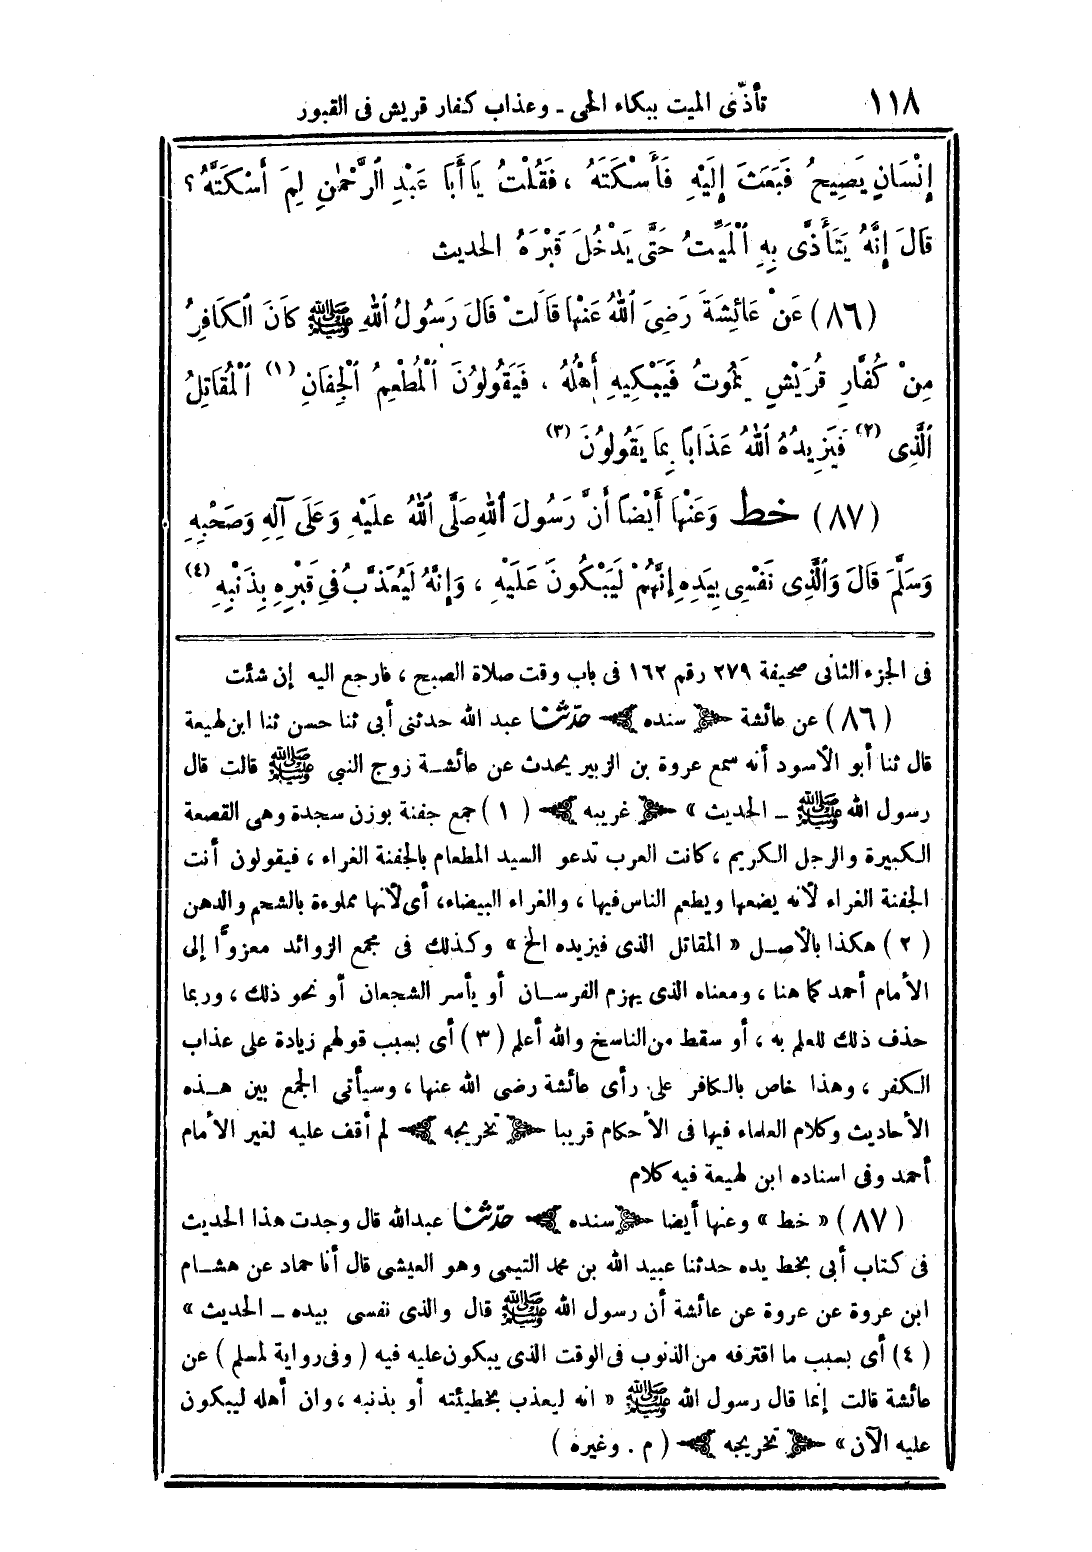 ١١٨ تأذّى الميت ببكاء الحى ـ وعذاب كفار قريش فى القبور
إِنْسَانٍ يَصِيحُ فَبَعَثَ إِلَيْهِ فَأَسْكَتَهُ ، فَقُلْتُ يَا أَبَا عَبْدِ الرَّحْمٰنِ لِمَ أَسْكَتَّهُ ؟
قَالَ إِنَّهُ يَتَأَذَّى بِهِ الْمَيِّتُ حَتَّى يَدْخُلَ قَبْرَهُ الحديث
(٨٦) عَنْ عَائِشَةَ رَضِىَ اللهُ عَنْهَا قَالَتْ قَالَ رَسُولُ اللهِ ﷺ كَانَ الْكَافِرُ
مِنْ كُفَّارِ قُرَيْشٍ يَمُوتُ فَيَبْكِيهِ أَهْلُهُ ، فَيَقُولُونَ الْمُطْعِمُ الْجِفَانِ (١) الْمُقَاتِلُ
الَّذِى (٢) فَيَزِيدُهُ اللهُ عَذَابًا بِمَا يَقُولُونَ (٣)
(٨٧) خط وَعَنْهَا أَيْضًا أَنَّ رَسُولَ اللهِ صَلَّى اللهُ عَلَيْهِ وَعَلَى آلِهِ وَصَحْبِهِ
وَسَلَّمَ قَالَ وَالَّذِى نَفْسِى بِيَدِهِ إِنَّهُمْ لَيَبْكُونَ عَلَيْهِ ، وَإِنَّهُ لَيُعَذَّبُ فِى قَبْرِهِ بِذَنْبِهِ (٤)
فى الجزء الثانى صحيفة ٢٧٩ رقم ١٦٢ فى باب وقت صلاة الصبح ، فارجع اليه إن شئت
(٨٦) عن عائشة سنده حدّثنا عبد الله حدثنى أبى ثنا حسن ثنا ابن لهيعة
قال ثنا أبو الأسود أنه سمع عروة بن الزبير يحدث عن عائشة زوج النبي ﷺ قالت قال
رسول الله ﷺ ـ الحديث » غريبه (١) جمع جفنة بوزن سجدة وهى القصعة
الكبيرة والرجل الكريم ، كانت العرب تدعو السيد المطعام بالجفنة الغراء ، فيقولون أنت
الجفنة الغراء لأنه يضعها ويطعم الناس فيها ، والغراء البيضاء، أى لأنها مملوءة بالشحم والدهن
(٢) هكذا بالأصل « المقاتل الذى فيزيده الخ » وكذلك فى مجمع الزوائد معزوًّا إلى
الأمام أحمد كما هنا ، ومعناه الذى يهزم الفرسان أو يأسر الشجعان أو نحو ذلك ، وربما
حذف ذلك للعلم به ، أو سقط من الناسخ والله أعلم (٣) أى بسبب قولهم زيادة على عذاب
الكفر ، وهذا خاص بالكافر على رأى عائشة رضى الله عنها ، وسيأتى الجمع بين هذه
الأحاديث وكلام العلماء فيها فى الأحكام قريبا تخريجه لم أقف عليه لغير الأمام
أحمد وفى اسناده ابن لهيعة فيه كلام
(٨٧) « خط » وعنها أيضا سنده حدّثنا عبدالله قال وجدت هذا الحديث
فى كتاب أبى بخط يده حدثنا عبيد الله بن محمد التيمى وهو العيشى قال أنا حماد عن هشام
ابن عروة عن عروة عن عائشة أن رسول الله ﷺ قال والذى نفسى بيده ـ الحديث »
(٤) أى بسبب ما اقترفه من الذنوب فى الوقت الذى يبكون عليه فيه ( وفى رواية لمسلم ) عن
عائشة قالت إنما قال رسول الله ﷺ « انه ليعذب بخطيئته أو بذنبه ، وان أهله ليبكون
عليه الآن » تخريجه ( م . وغيره )